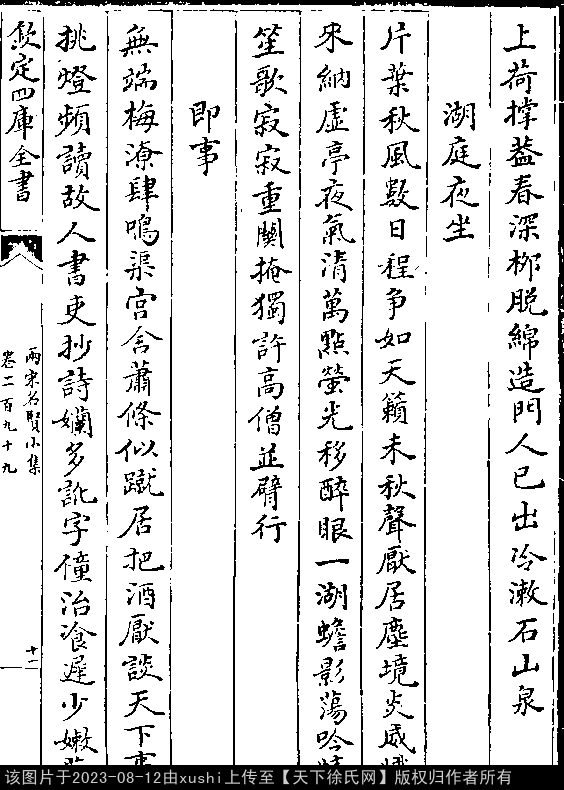 上荷撑葢春深栁脱綿造門人已出冷漱石山泉
湖庭夜坐
片葉秋風數日程争如天籟未秋聲厭居塵境炎威
來納虚亭夜氣清萬點螢光移酔眼一湖蟾影蕩吟
笙歌寂寂重闗掩獨許高僧並臂行
即事
無端梅潦肆鳴渠官舎蕭條似蹴居把酒厭談天下事
挑燈頻讀故人書吏抄詩爛多訛字僮治飡遲少嫩
欽定四庫全書
兩宋名賢小集
卷二百九十九
十一
该图片于2023-08-12由xushi上传至【天下徐氏网】版权归作者所有